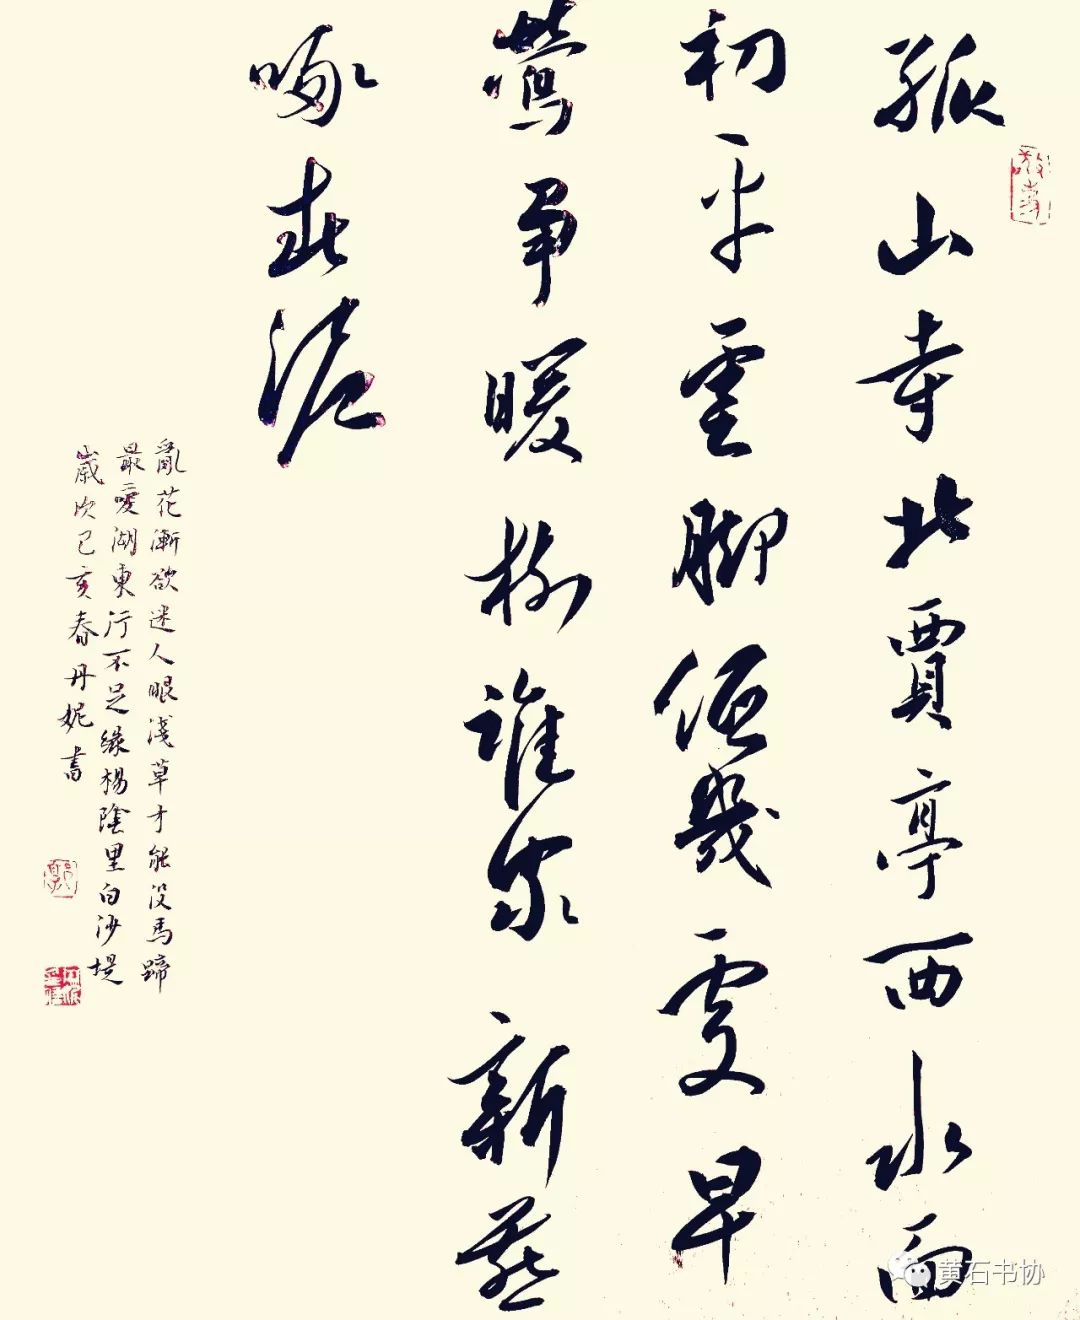 孤山寺北賈亭西水面
初平雲脚低幾處早
鶯爭暖樹誰家新燕
啄春泥
亂花漸欲迷人眼淺草才能没馬蹄
最愛湖東行不足綠楊陰里白沙堤
歲次己亥春丹妮書
黄石书协